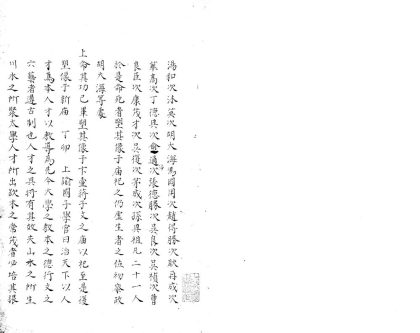 湯和次沐英次胡大海馮國用次趙得勝次耿再成次
華高次丁德興次俞通次張德勝次吳良次吳禎次曹
良臣次康茂才次吳復次茅成次孫興祖凡二十一人
於是命死者塑其像于廟祀之仍虛生者之位初參政
胡大海等歿
上命其功已畢塑其像于卞壼蔣子文之廟以祀至是復
塑像于新廟　丁卯　上諭國子學官曰治天下以人
才爲本人才以教導爲先今太學之教本之德行文之
六藝者遵古制也人才之興將有其效夫山木之所生
川水之所聚太學人才所出欲木之常茂者必培其根